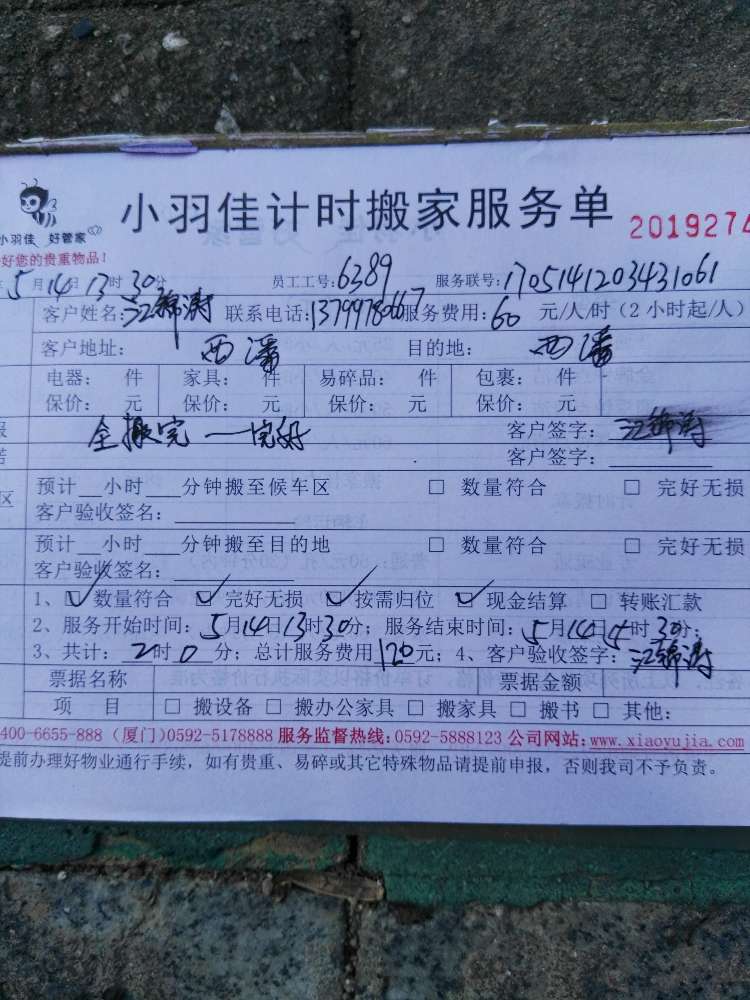 小羽佳计时搬家服务单
2019274
小羽佳 好管家
好您的贵重物品!
5月14日13时30分 员工工号:6389 服务联号:1705141203431061
客户姓名:江锦涛 联系电话:13799780667 服务费用:60 元/人/时(2小时起/人)
客户地址: 西潘 目的地: 西潘
电器: 件 家具: 件 易碎品: 件 包裹: 件
保价: 元 保价: 元 保价: 元 保价: 元
全搬完 一完好 客户签字:江锦涛
客户签字:
预计__小时___分钟搬至候车区 □ 数量符合 □ 完好无损
区 客户验收签名:
预计__小时___分钟搬至目的地 □ 数量符合 □ 完好无损
客户验收签名:
1、☑ 数量符合 ☑ 完好无损 ☑ 按需归位 ☑ 现金结算 □ 转账汇款
2、服务开始时间:5月14日13时30分;服务结束时间:5月14日15时30分;
3、共计:2时0分;总计服务费用120元;4、客户验收签字:江锦涛
票据名称 票据金额
项 目 □ 搬设备 □ 搬办公家具 □ 搬家具 □ 搬书 □ 其他:
400-6655-888 (厦门)0592-5178888 服务监督热线:0592-5888123 公司网站:www.xiaoyujia.com
提前办理好物业通行手续,如有贵重、易碎或其它特殊物品请提前申报,否则我司不予负责。